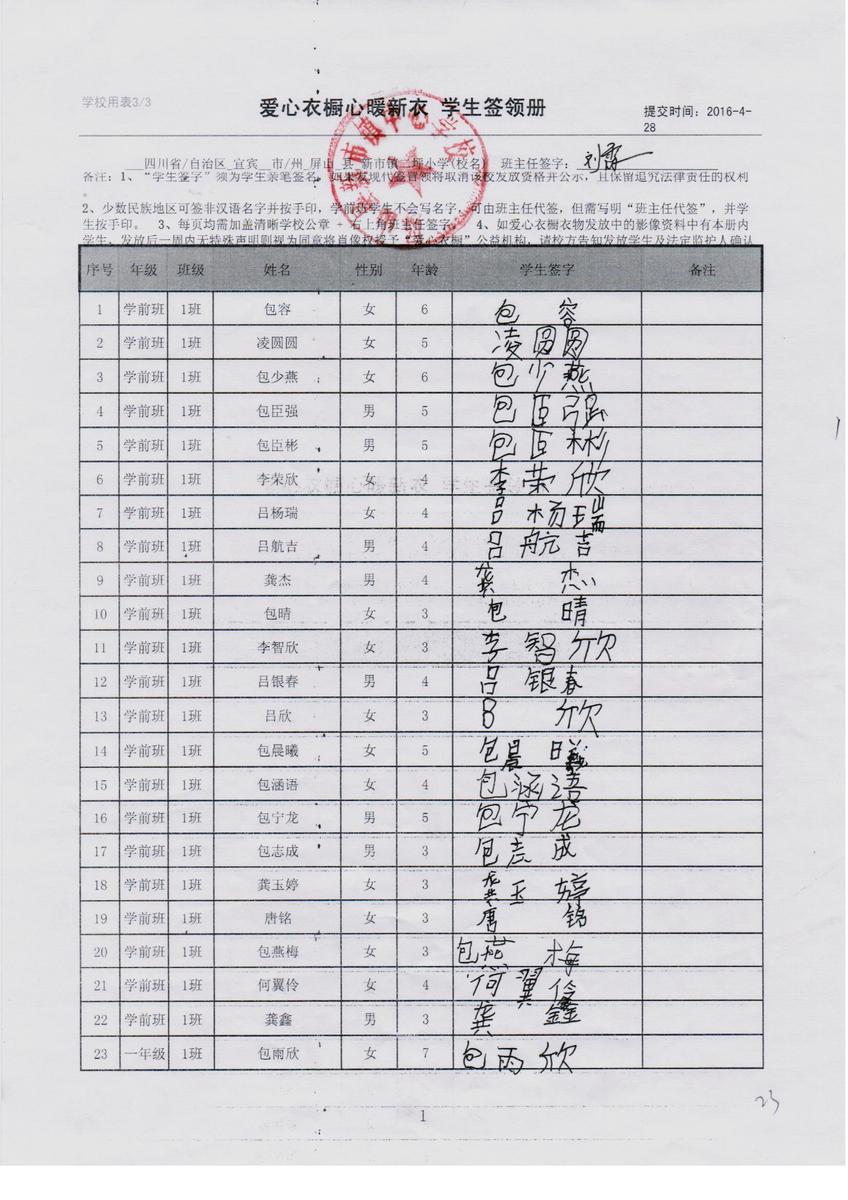 学校用表3/3
爱心衣橱心暖新衣 学生签领册
提交时间: 2016-4-28
四川省/自治区 宜宾 市/州 屏山 县 新市镇 坪小学(校名) 班主任签字:
备注: 1、“学生签字”须为学生亲笔签名，如果发现代签冒领将取消该校发放资格并公示，且保留追究法律责任的权利
。
2、少数民族地区可签非汉语名字并按手印，学前班学生不会写名字，可由班主任代签，但需写明“班主任代签”，并学
生按手印。 3、每页均需加盖清晰学校公章 + 右上角班主任签字。 4、如爱心衣橱衣物发放中的影像资料中有本册内
学生，发放后一周内无特殊声明则视为同意将肖像权授予“爱心衣橱”公益机构，请校方告知发放学生及法定监护人确认
序号 年级 班级 姓名 性别 年龄 学生签字 备注
1 学前班 1班 包容 女 6 包容
2 学前班 1班 凌圆圆 女 5 凌圆圆
3 学前班 1班 包少燕 女 6 包少燕
4 学前班 1班 包臣强 男 5 包臣强
5 学前班 1班 包臣彬 男 5 包臣彬
6 学前班 1班 李荣欣 女 4 李荣欣
7 学前班 1班 吕杨瑞 女 4 吕杨瑞
8 学前班 1班 吕航吉 男 4 吕航吉
9 学前班 1班 龚杰 男 4 龚杰
10 学前班 1班 包晴 女 3 包晴
11 学前班 1班 李智欣 女 3 李智欣
12 学前班 1班 吕银春 男 4 吕银春
13 学前班 1班 吕欣 女 3 吕欣
14 学前班 1班 包晨曦 女 5 包晨曦
15 学前班 1班 包涵语 女 4 包涵语
16 学前班 1班 包宁龙 男 5 包宁龙
17 学前班 1班 包志成 男 3 包志成
18 学前班 1班 龚玉婷 女 3 龚玉婷
19 学前班 1班 唐铭 女 3 唐铭
20 学前班 1班 包燕梅 女 3 包燕梅
21 学前班 1班 何翼伶 女 4 何翼伶
22 学前班 1班 龚鑫 男 3 龚鑫
23 一年级 1班 包雨欣 女 7 包雨欣
23
1